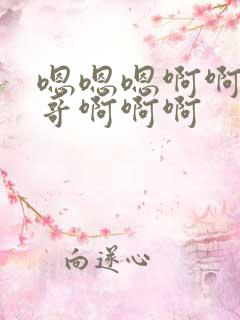 嗯嗯嗯啊啊
哥啊啊啊
向遂心